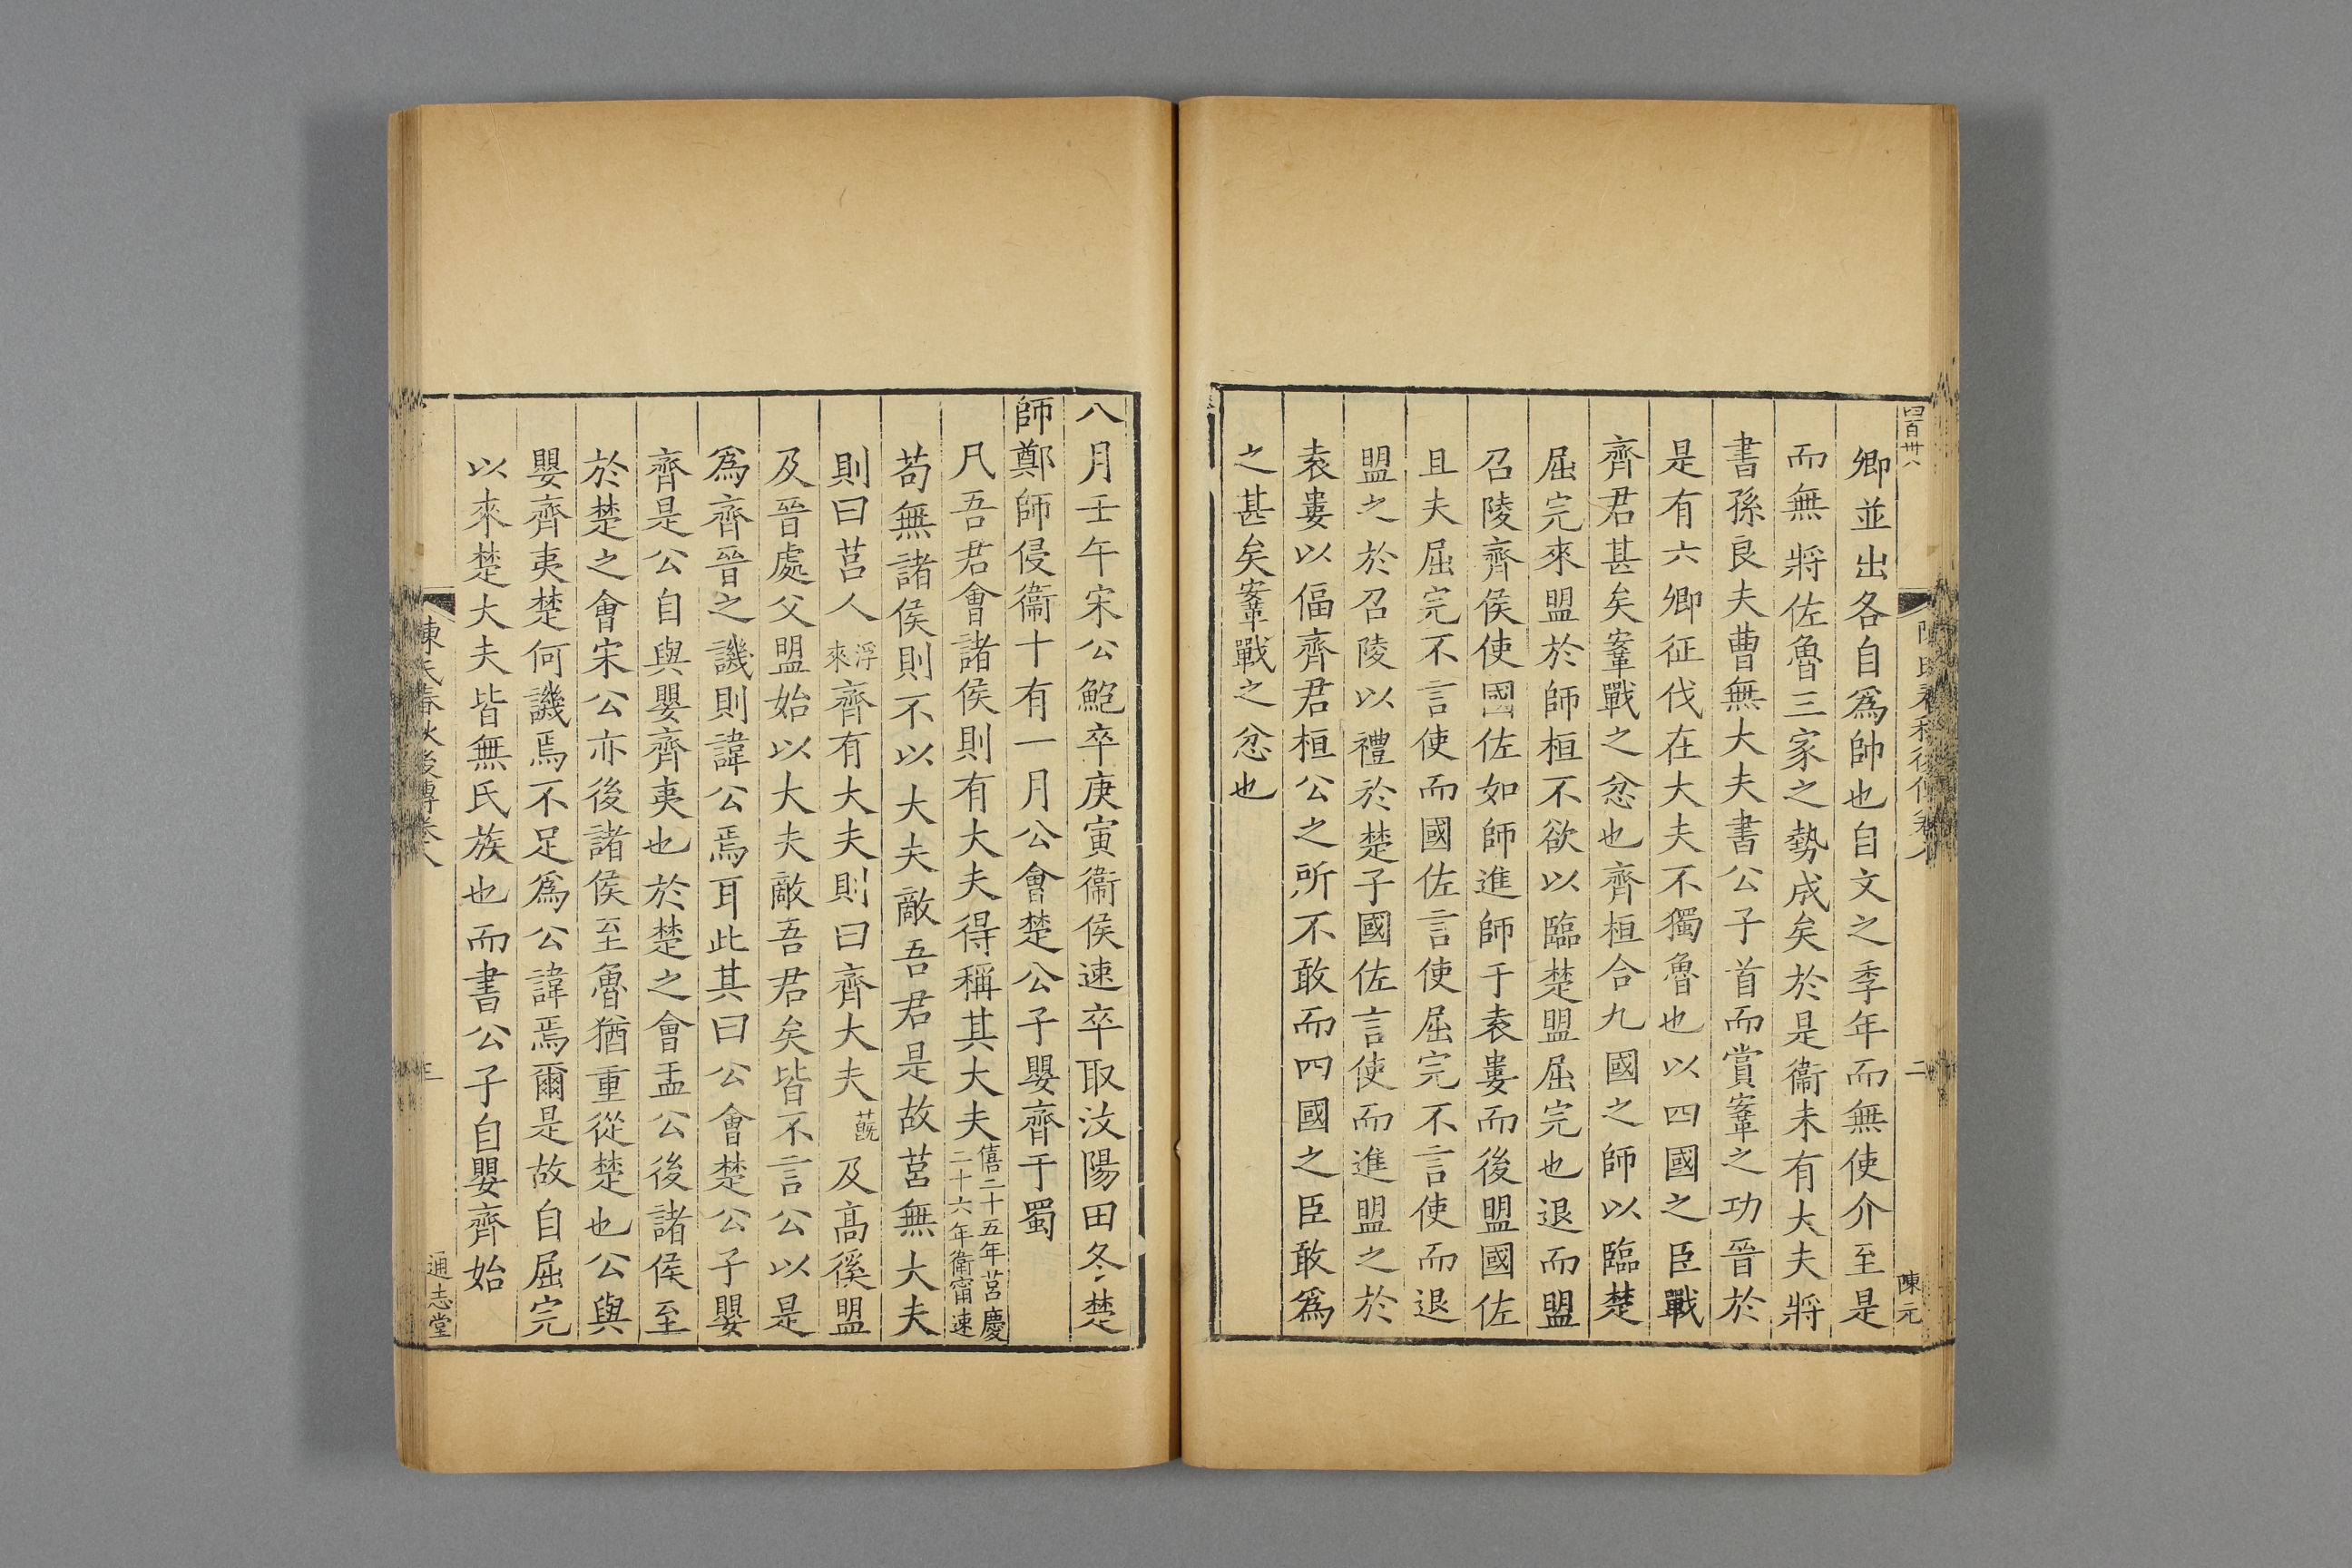 四百卅八
卿並出各自爲帥也自文之季年而無使介至是
而無將佐魯三家之勢成矣於是衞未有大夫將
書孫良夫曹無大夫書公子首而賞鞌之功晉於
是有六卿征伐在大夫不獨魯也以四國之臣戰
齊君甚矣鞌戰之忿也齊桓合九國之師以臨楚
屈完來盟於師桓不欲以臨楚盟屈完也退而盟
召陵齊侯使國佐如師進師于袁婁而後盟國佐
且夫屈完不言使而國佐言使屈完不言使而退
盟之於召陵以禮於楚子國佐言使而進盟之於
袁婁以偪齊君桓公之所不敢而四國之臣敢爲
之甚矣鞌戰之忿也
二
陳元
八月壬午宋公鮑卒庚寅衞侯速卒取汶陽田冬楚
師鄭師侵衞十有一月公會楚公子嬰齊于蜀
凡吾君會諸侯則有大夫得稱其大夫僖二十五年莒慶二十六年衞甯速
苟無諸侯則不以大夫敵吾君是故莒無大夫
則曰莒人浮來齊有大夫則曰齊大夫蔇及高徯盟
及晉處父盟始以大夫敵吾君矣皆不言公以是
爲齊晉之譏則諱公焉耳此其曰公會楚公子嬰
齊是公自與嬰齊夷也於楚之會盂公後諸侯至
於楚之會宋公亦後諸侯至魯猶重從楚也公與
嬰齊夷楚何譏焉不足爲公諱焉爾是故自屈完
以來楚大夫皆無氏族也而書公子自嬰齊始
陳氏春秋後傳卷八
三
通志堂